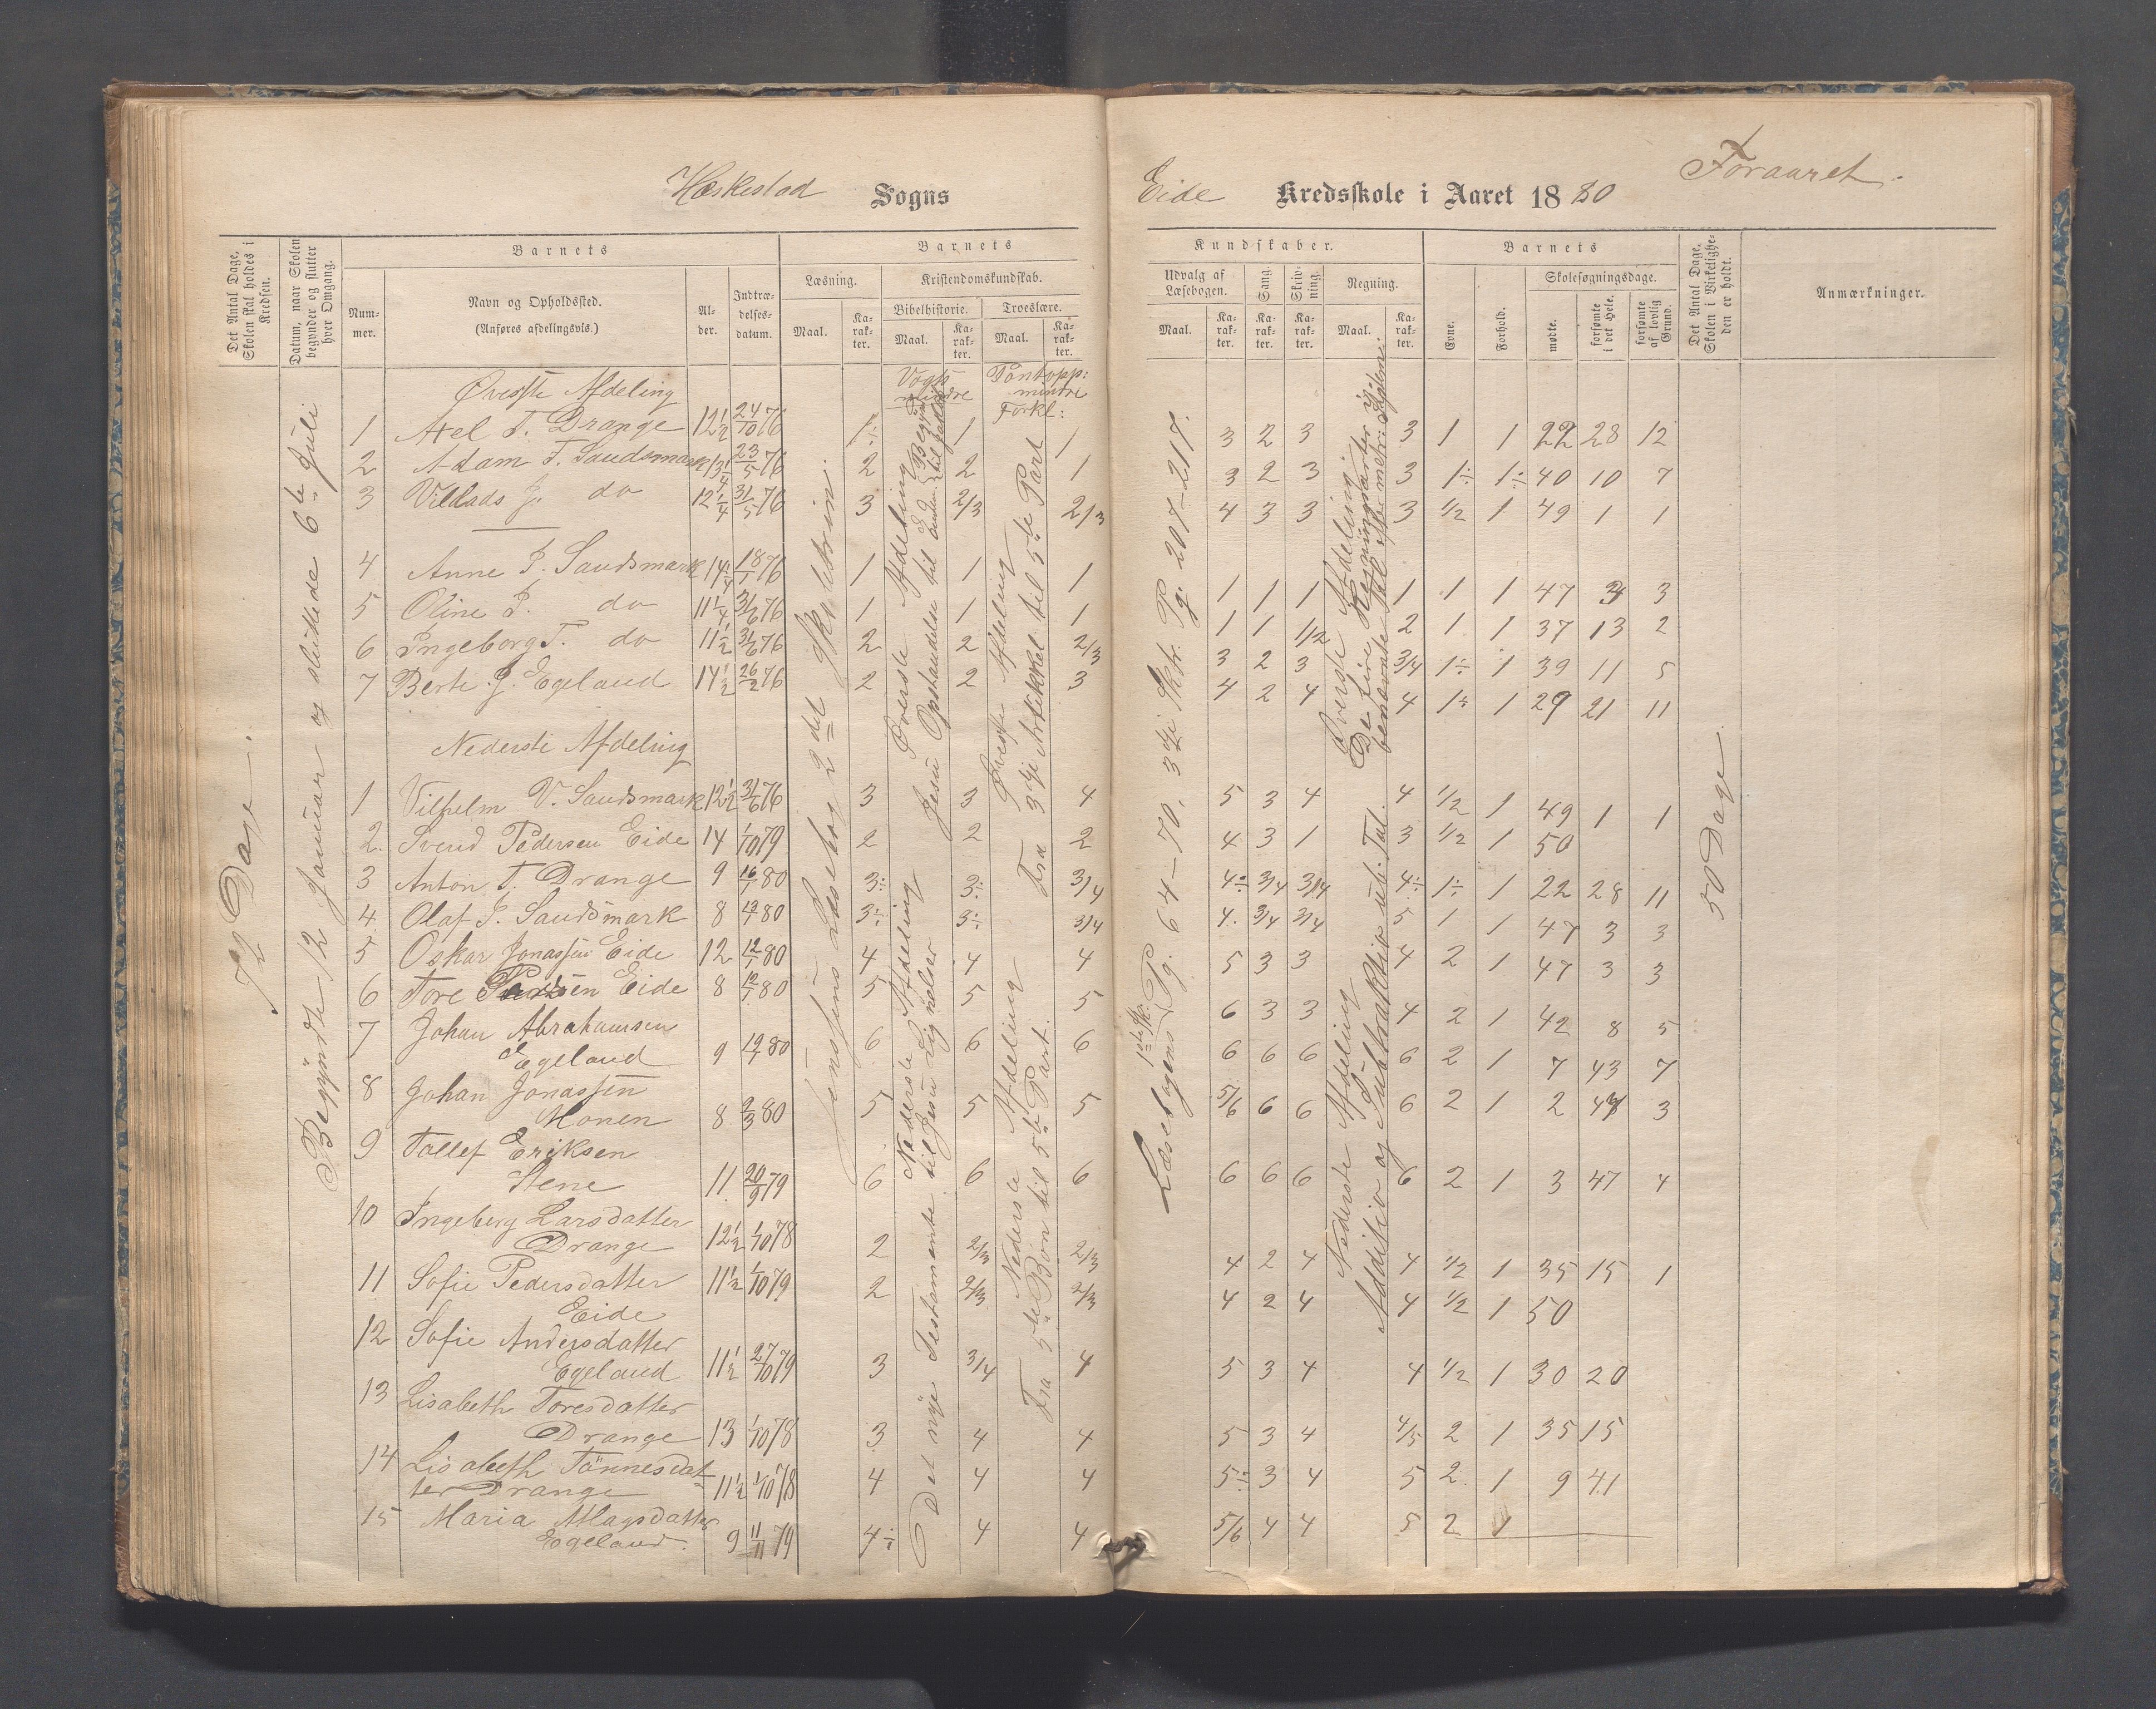 Heskestad Sogns
Eide Kredsskole i Aaret 1880
Foraaret.
Det Antal Dage, Skolen skal holdes i Kredsen.
Datum, naar Skolen begynder og slutter hver Omgang.
Barnets
Nummer.
Navn og Opholdssted.
(Anføres afdelingsvis.)
Alder.
Indtrædelsesdatum.
Barnets
Læsning.
Maal.
Karakter.
Kristendomskundskab.
Bibelhistorie.
Maal.
Karakter.
Troeslære.
Maal.
Karakter.
Kundskaber.
Udvalg af Læsebogen.
Maal.
Karakter.
Sang.
Karakter.
Skrivning.
Karakter.
Regning.
Maal.
Karakter.
Barnets
Evne.
Forhold.
Skolesøgningsdage.
mødte.
forsømte i det Hele.
forsømte af lovlig Grund.
Det Antal Dage, Skolen i Virkeligheden er holdt.
Anmærkninger.
72 Dage.
Begyndte 12 Januar og sluttede 6te Juli
Jensens Læsebog 2det Skoletrin.
Vogts mindre
Øverste Afdeling
Nederste Afdeling
Det nye Testamente til Jesu Lignelser
Pontopp: mindre Forkl:
Øverste Afdeling
Fra 3die Artikkel til 5te Part
Nederste Afdeling
Fra 5te Bøn til 5te Part.
Læsebogens 1ste Sk. Pg. 64-70, 3die Skr. Pg. 207-217.
Øverste Afdeling.
De fire Regningsarter i
Nederste Afdeling
Additio og Subtraktio ub. Tal.
50 Dage
Øverste Afdeling
1 Axel T. Drange 12 1/2 24/10 76 1÷ 1 1 3 2 3 3 1 1 22 28 12
2 Adam T. Saudsmark 13 1/4 23/5 76 2 2 1 3 2 3 3 1÷ 1÷ 40 10 7
3 Villads J. do 12 1/4 31/5 76 3 2/3 2/3 4 3 3 3 1/2 1 49 1 1
4 Anne P. Saudsmark 14 1/4 18/1 76 1 1 1 1 1 1 1 1 1 47 3 3
5 Oline P. do 11 1/4 31/6 76 1 1 1 1 1 1/2 2 1 1 37 13 2
6 Ingeborg T. do 11 1/2 31/6 76 2 2 2/3 3 2 3 3/4 1÷ 1 39 11 5
7 Berte J. Egeland 14 1/2 26/2 76 2 2 3 4 2 4 4 1÷ 1 29 21 11
Nederste Afdeling
1 Vilhelm V. Saudsmark 12 1/2 31/6 76 3 3 4 5 3 4 4 1/2 1 49 1 1
2. Svend Pedersen Eide 14 1/10 79 2 2 2 4 3 1 3 1/2 1 50
3 Anton T. Drange 9 16/1 80 3÷ 3÷ 3/4 4÷ 3/4 3/4 4÷ 1÷ 1 22 28 11
4. Olaf P. Saudsmark 8 13/1 80 3÷ 3÷ 3/4 4. 3/4 3/4 5 1 1 47 3 3
5 Oskar Jonassen Eide 12 12/1 80 4 4 4 5 3 3 4 2 1 47 3 3
6 Tore Eide 8 12/1 80 5 5 5 6 3 3 4 2 1 42 8 5
7 Johan Abrahamsen
Egeland 9 19/1 80 6 6 6 6 6 6 6 2 1 7 43 7
8 Johan Jonassen
Monen 8 2/3 80 5 5 5 5/6 6 6 6 2 1 2 48 3
9 Tollef Eriksen
Stene 11 20/9 79 6 6 6 6 6 6 6 2 1 3 47 4
10 Ingeberg Larsdatter
Drange 12 1/2 1/10 78 2 2/3 2/3 4 2 4 4 1/2 1 35 15 1
11 Sofie Pedersdatter 11 1/2 1/10 79 2 2/3 2/3 4 2 4 4 1/2 1 50
Eide
12 Sofie Andersdatter
Egeland 11 1/2 27/10 79 3 3/4 4 5 3 4 4 1/2 1 30 20
13 Lisabeth Toresdatter
Drange 13 1/10 78 3 4 4 5 3 4 4/5 2 1 35 15
14 Lisabeth Tønnesdat-
ter Drange 11 1/2 1/10 78 4 4 4 5÷ 3 4 5 2 1 9 41
15 Maria Aslagsdatter
Egeland. 9 11/11 79 4÷ 4 4 5/6 4 4 5 2 1